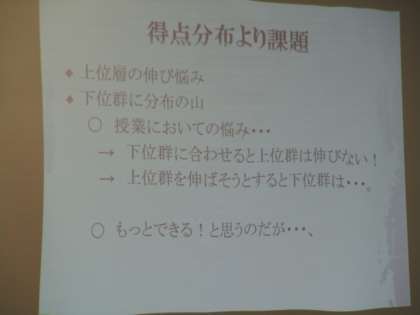 得点分布より課題
◆ 上位層の伸び悩み
◆ 下位群に分布の山
○ 授業においての悩み・・・
→ 下位群に合わせると上位群は伸びない！
→ 上位群を伸ばそうとすると下位群は・・・。
○ もっとできる！と思うのだが・・・、